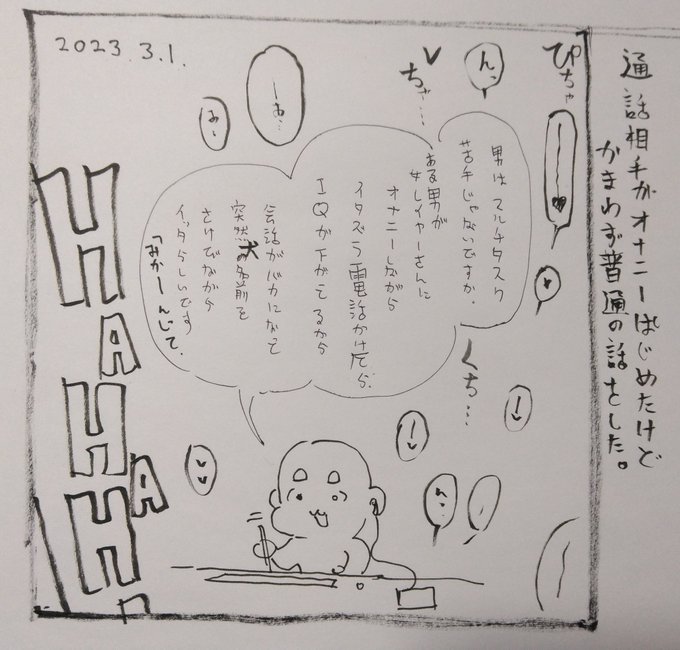 通話相手がオナニーはじめたけど
かまわず普通の話をした。
2023.3.1.
ぴちゃ
んっ
ちゃ…
ーあ…
は、
男はマルチタスク
苦手じゃないですか、
ある男が
女レイヤーさんに
オナニーしながら
イタズラ電話かけたら、
IQが下がってるから
会話がバカになって
突然犬の名前を
さけびながら
イッタらしいです
「みかーん」って、
くち…
ん…
HAHAHA